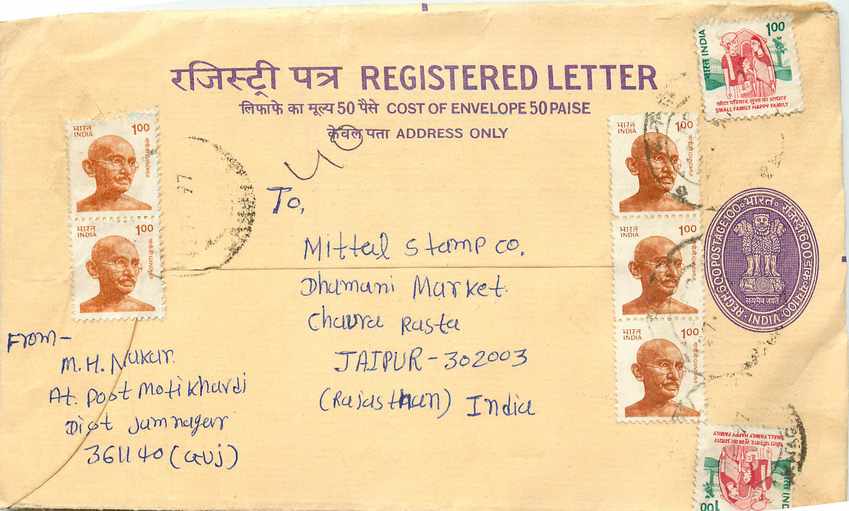 रजिस्ट्री पत्र REGISTERED LETTER
लिफाफे का मूल्य 50 पैसे COST OF ENVELOPE 50 PAISE
केवल पता ADDRESS ONLY
भारत INDIA 100
छोटा परिवार, सुख का आधार
SMALL FAMILY HAPPY FAMILY
भारत
INDIA 100
भारत
INDIA 100
भारत
INDIA 100
भारत
INDIA 100
भारत
INDIA 100
REGN.600 POSTAGE 100 भारत
INDIA
सत्यमेव जयते
To,
Mittal Stamp co.
Dhamani Market
Chaura Rasta
JAIPUR-302003
(Rajasthan) India
From-
M.H. Nakum
At. Post Moti Khavdi
Dist Jamnagar
361140 (Guj)
SMALL FAMILY HAPPY FAMILY
100